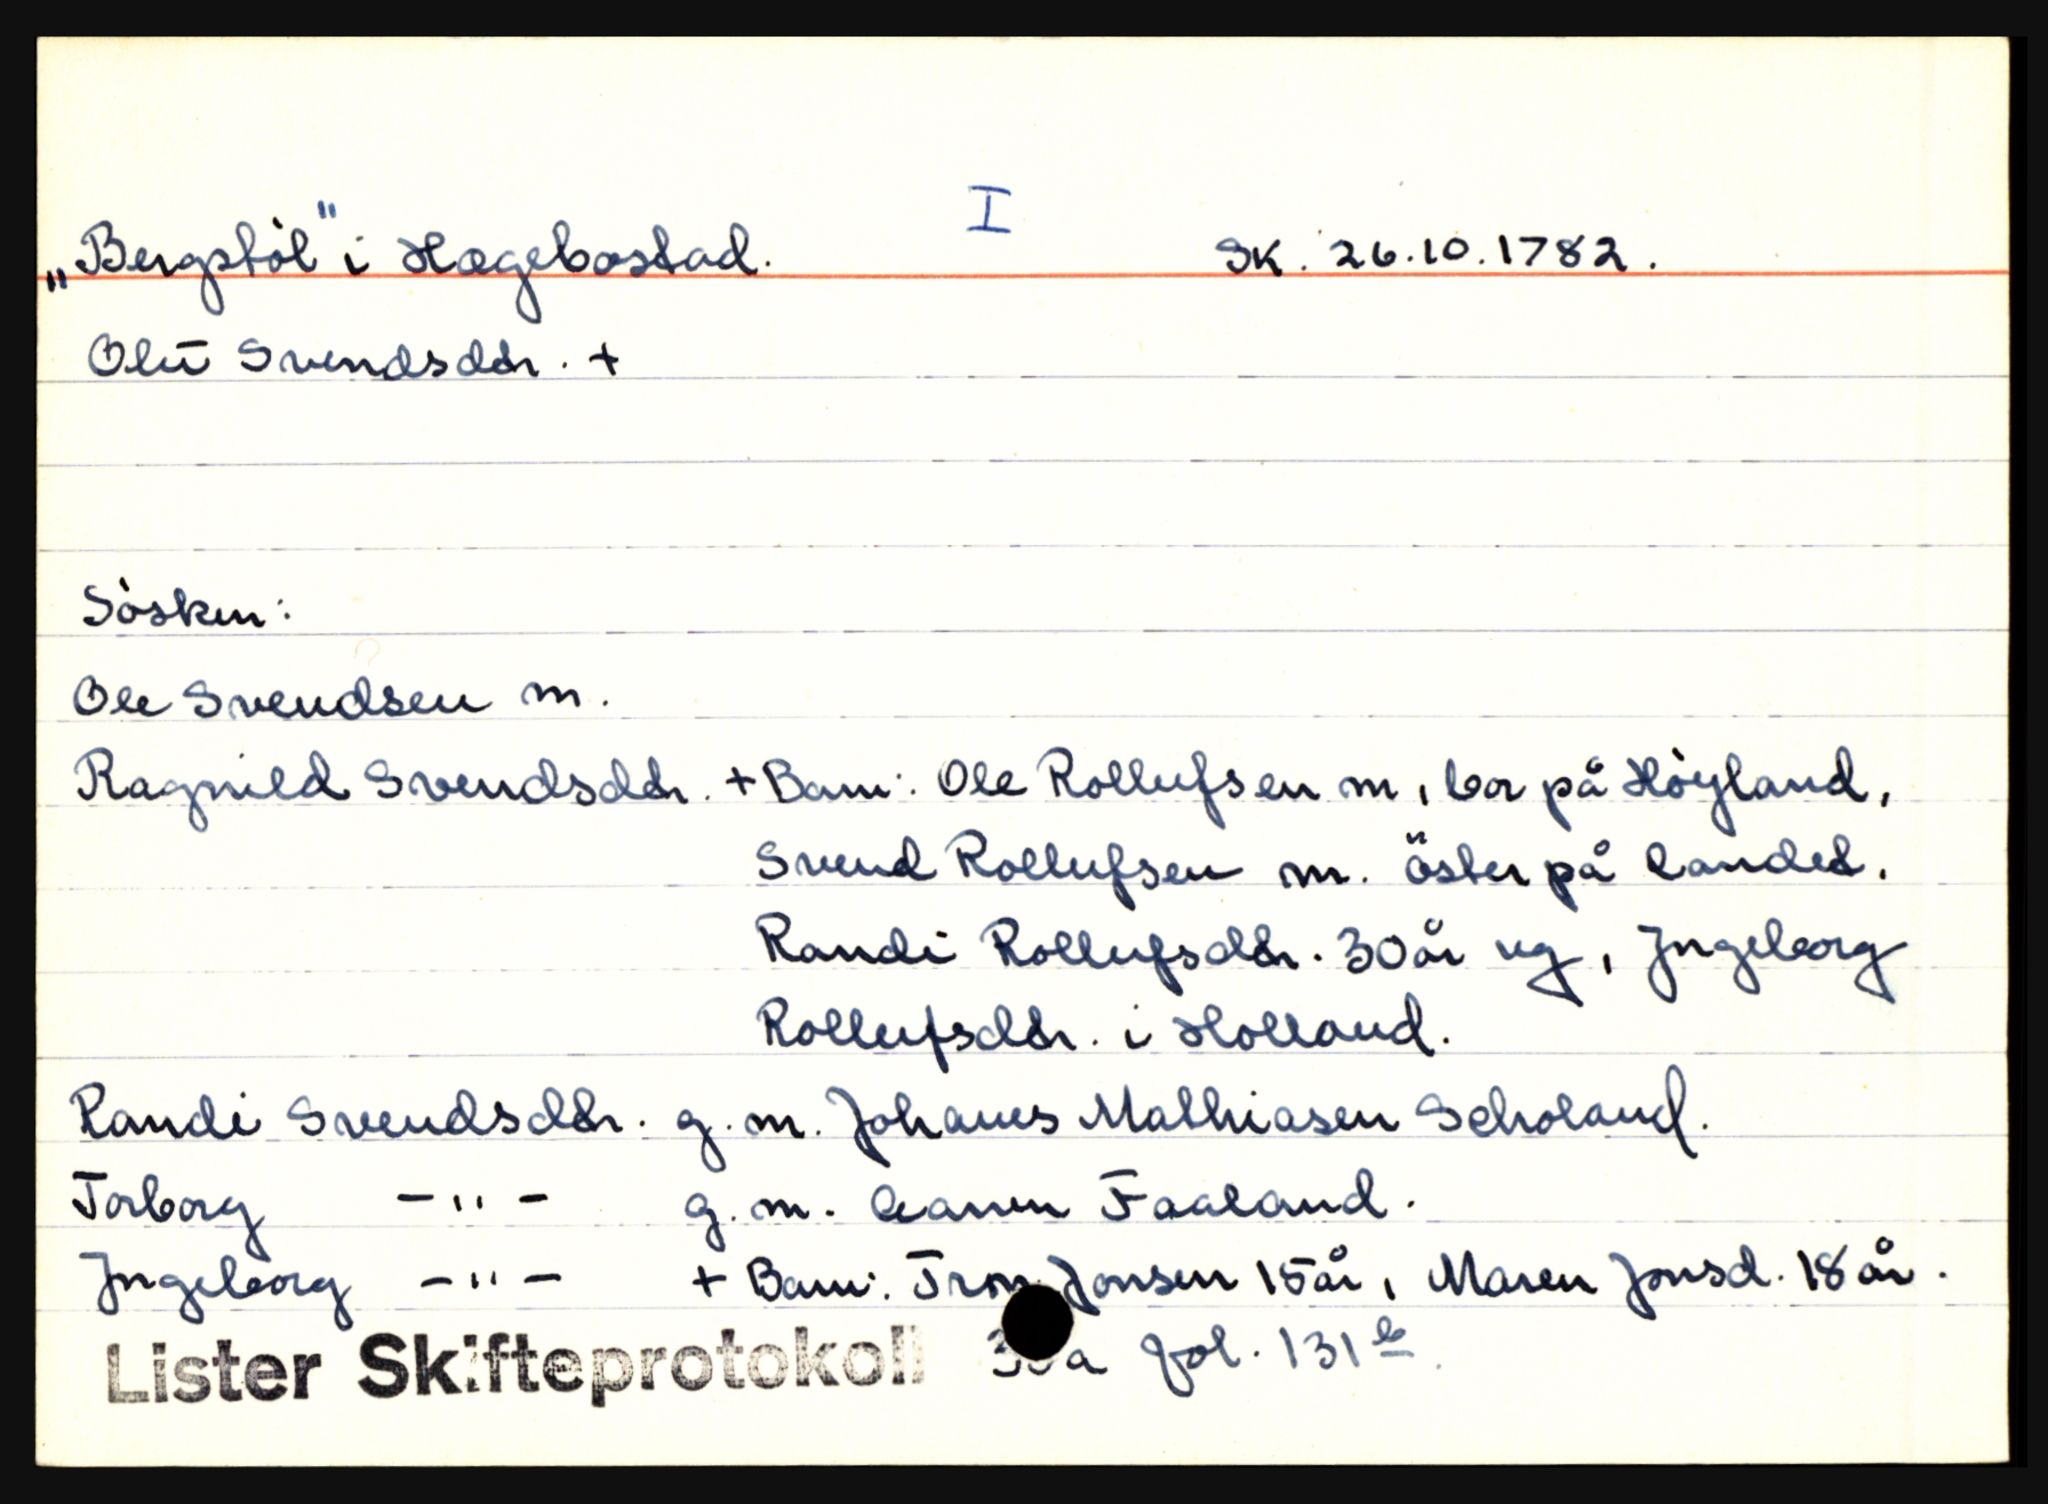 I
„Bergstöl" i Hægebostad. SK. 26.10.1782.
Olu Svendsdtr. +
Sösken:
Ole Svendsen m.
Ragnild Svendsdtr. + Barn: Ole Rollufsen m, bor på Höyland,
Svend Rollufsen m. öster på landet.
Randi Rollufsdtr. 30 år ug, Ingeborg
Rollufsdtr. i Holland.
Randi Svendsdtr. g. m. Johanes Mathiasen Scholand.
Torborg -"- g. m. Aanen Faaland.
Ingeborg -"- + Barn: Tron Jonsen 15 år, Maren Jonsd. 18 år.
Lister Skifteprotokoll fol. 131 b.